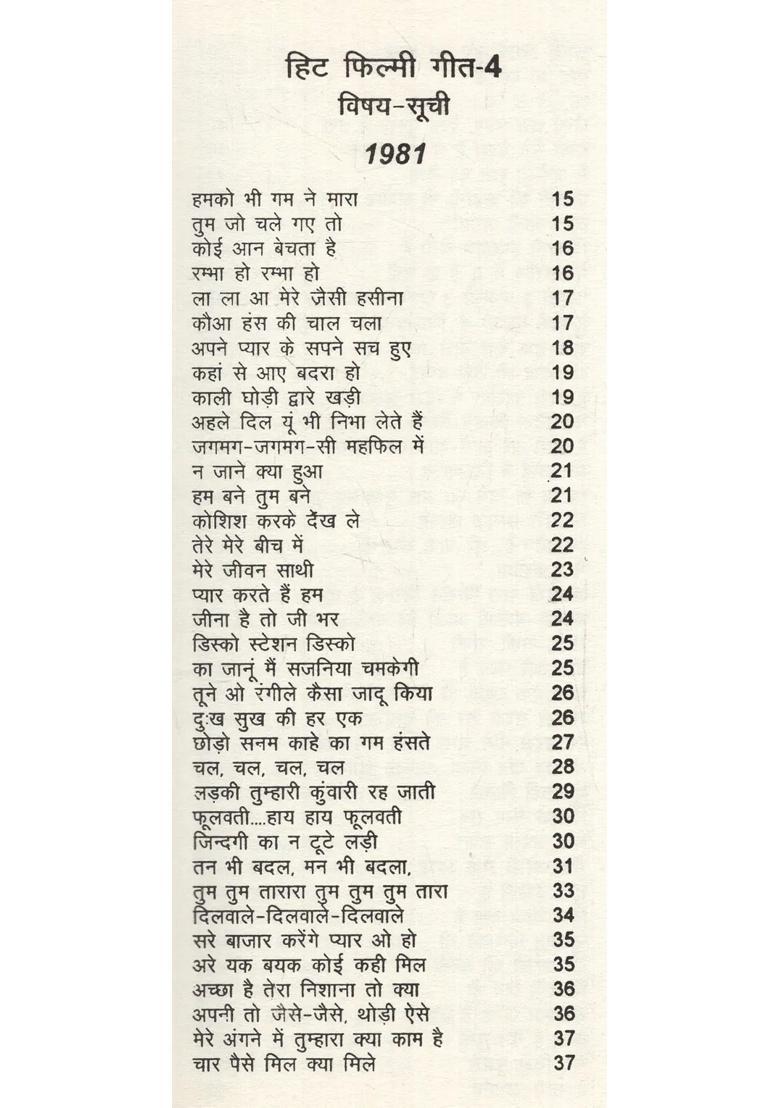 हिट फिल्मी गीत-4
विषय-सूची
1981
हमको भी गम ने मारा 15
तुम जो चले गए तो 15
कोई आन बेचता है 16
रम्भा हो रम्भा हो 16
ला ला आ मेरे जैसी हसीना 17
कौआ हंस की चाल चला 17
अपने प्यार के सपने सच हुए 18
कहां से आए बदरा हो 19
काली घोड़ी द्वारे खड़ी 19
अहले दिल यूं भी निभा लेते हैं 20
जगमग-जगमग-सी महफिल में 20
न जाने क्या हुआ 21
हम बने तुम बने 21
कोशिश करके देख ले 22
तेरे मेरे बीच में 22
मेरे जीवन साथी 23
प्यार करते हैं हम 24
जीना है तो जी भर 24
डिस्को स्टेशन डिस्को 25
का जानूं मैं सजनिया चमकेगी 25
तूने ओ रंगीले कैसा जादू किया 26
दुःख सुख की हर एक 26
छोड़ो सनम काहे का गम हंसते 27
चल, चल, चल, चल 28
लड़की तुम्हारी कुंवारी रह जाती 29
फूलवती....हाय हाय फूलवती 30
जिन्दगी का न टूटे लड़ी 30
तन भी बदल, मन भी बदला, 31
तुम तुम तारारा तुम तुम तुम तारा 33
दिलवाले-दिलवाले-दिलवाले 34
सरे बाजार करेंगे प्यार ओ हो 35
अरे यक बयक कोई कही मिल 35
अच्छा है तेरा निशाना तो क्या 36
अपनी तो जैसे-जैसे, थोड़ी ऐसे 36
मेरे अंगने में तुम्हारा क्या काम है 37
चार पैसे मिल क्या मिले 37